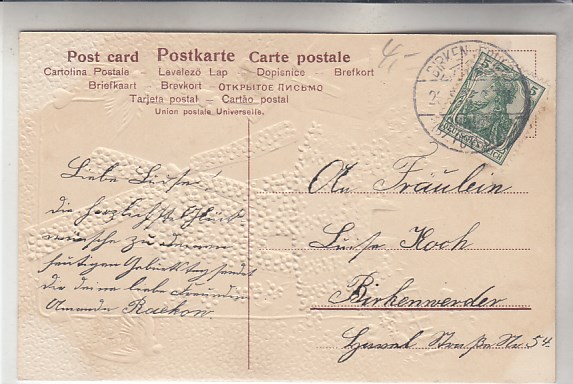 Post card Postkarte Carte postale
Cartolina Postale – Levelező Lap – Dopisnice – Brefkort
Briefkaart – Brevkort – ОТКРЫТОЕ ПИСЬМО
Tarjeta postal – Cartão postal
Union postale Universelle.
4,-
BIRKEN
5 5
Deutsches Reich
Liebe Luise!
die herzlichste Glück-
wünsche zu deinem
heutigen Geburtstag sendet
dir deine liebe Freundin
Amanda Raekow.
An Fräulein
Luise Koch
Birkenwerder
Havel Straße Nr. 54